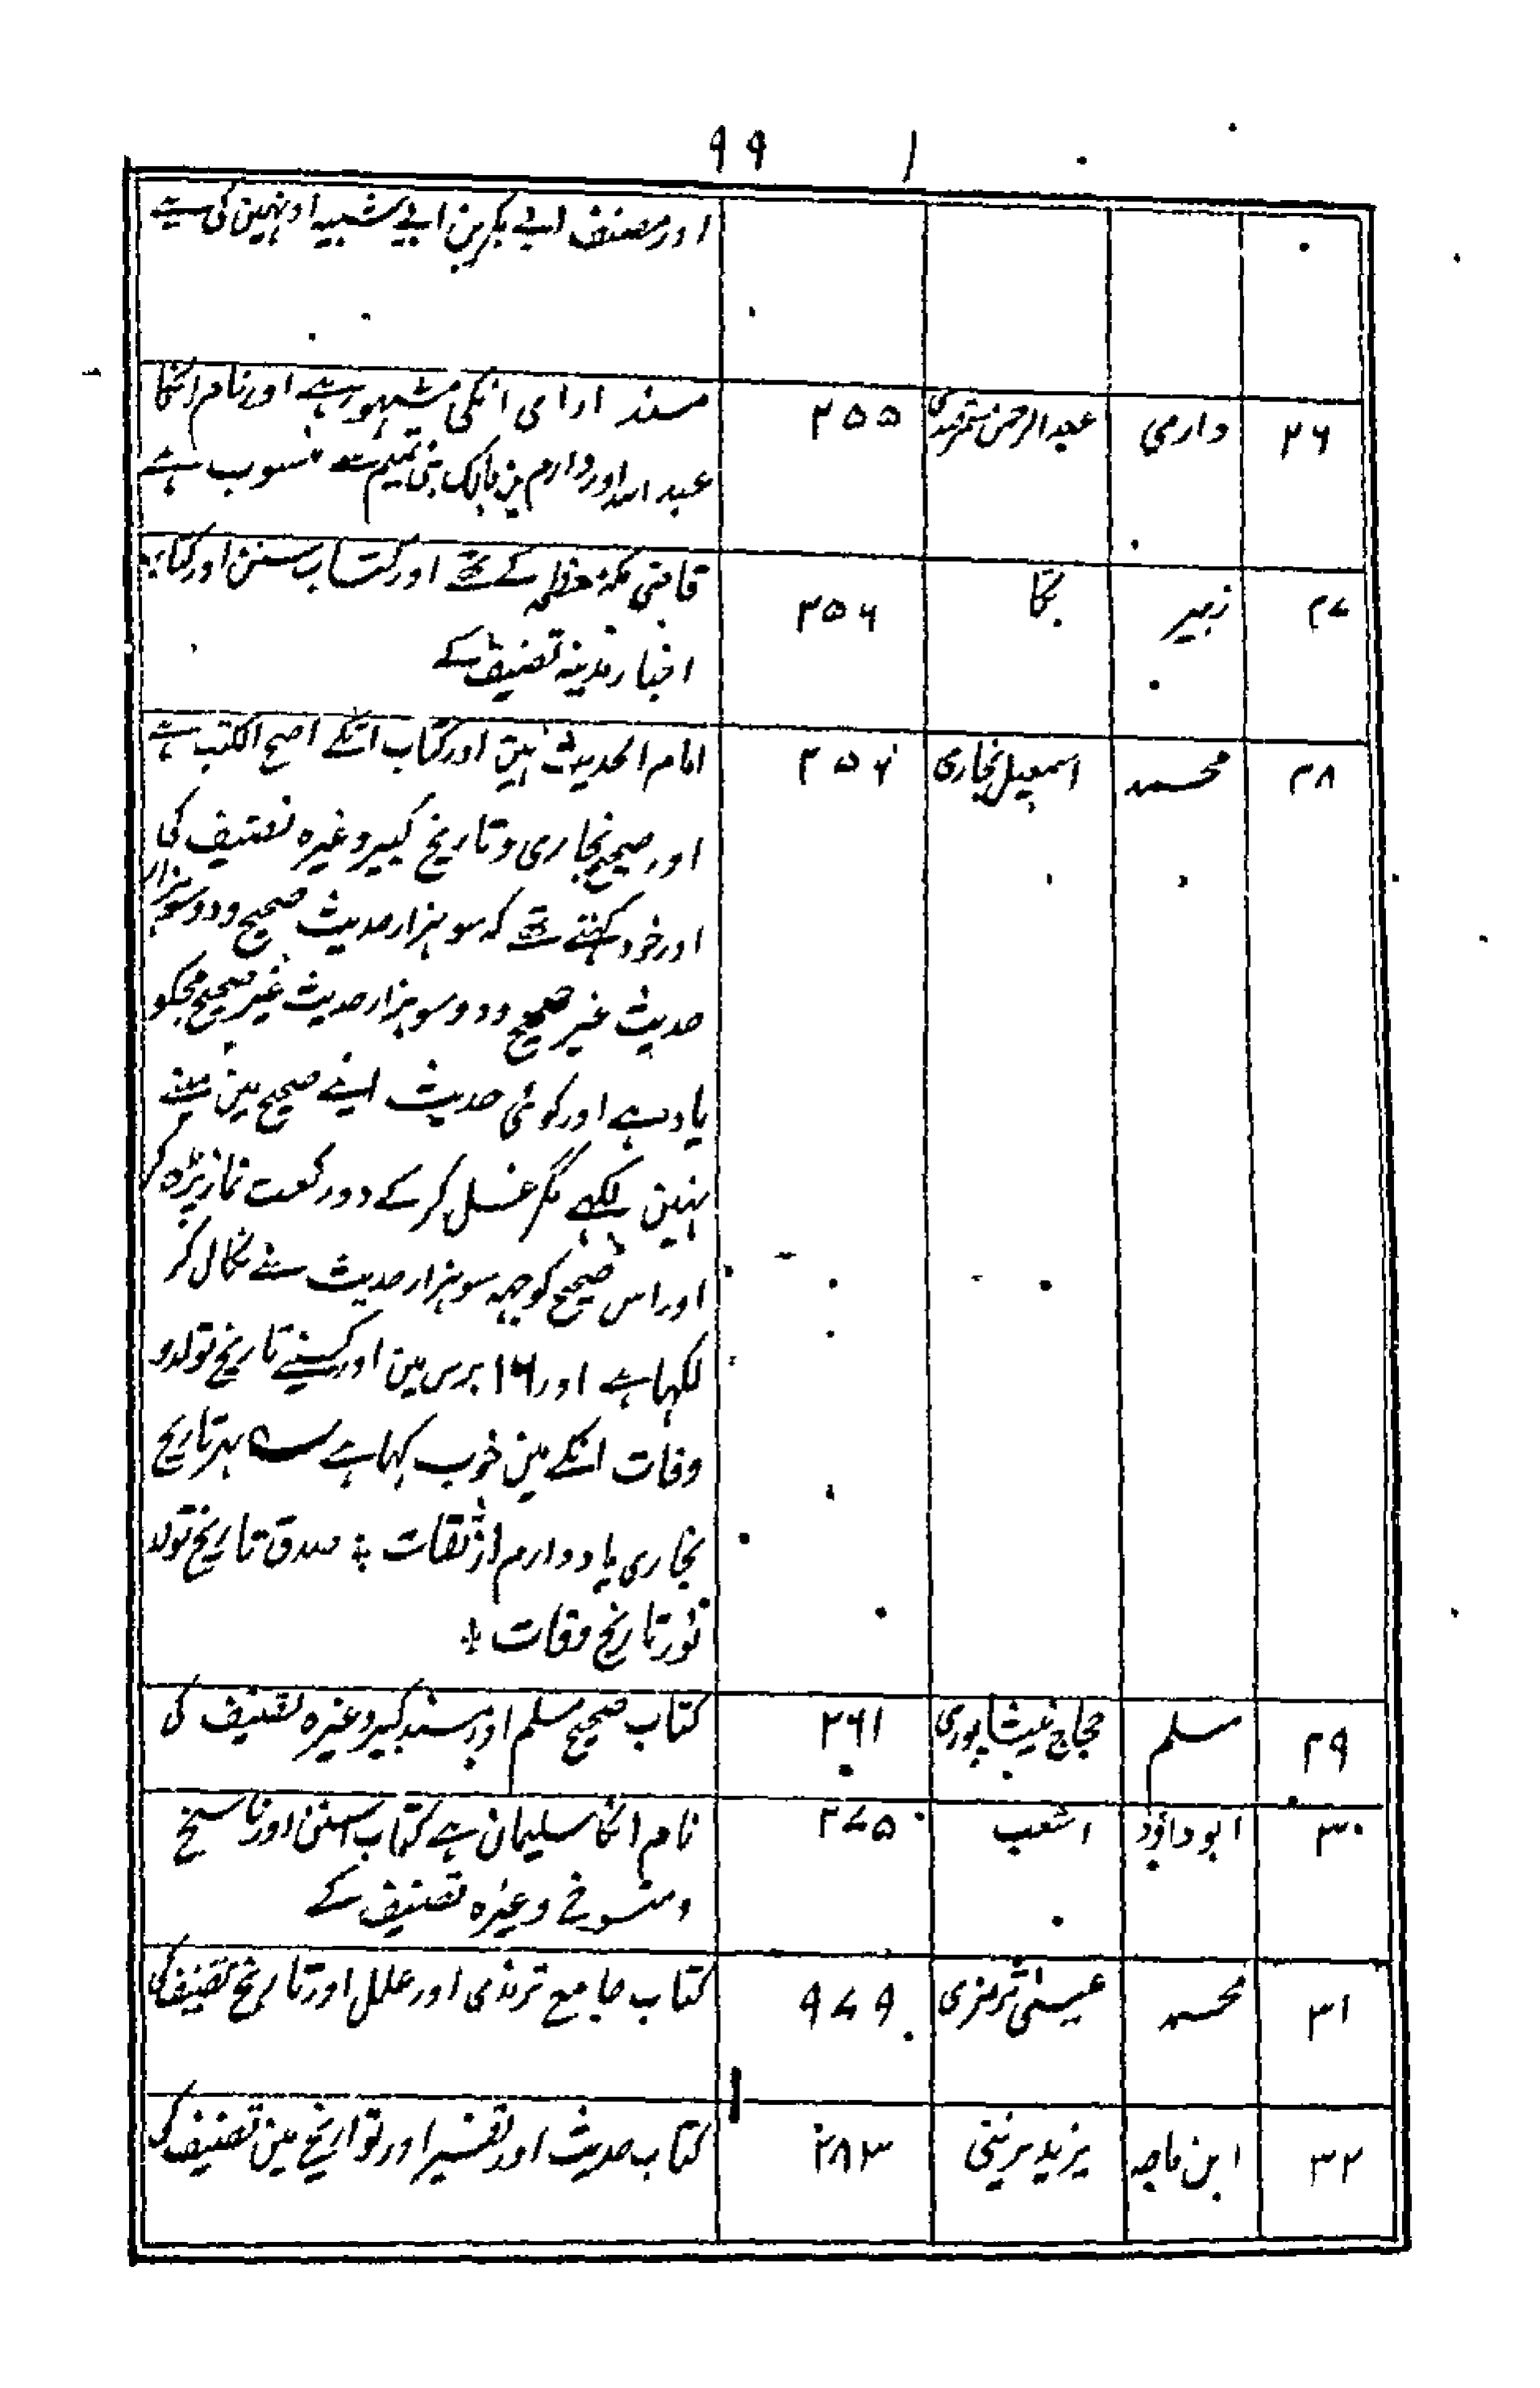 ۹۹
اور مصنف ابی بکر بن ابی شیبہ اونہین کی ہے
۲۶ دارمی عبد الرحمن سمرقندی ۲۵۵ مسند دارمی انکی مشہور ہے اور نام انکا
عبد اللہ اور دارم بن مالک بنی تمیم سے منسوب ہے
۲۷ زبیر بکا ۲۵۶ قاضی مکہ معظمہ کے تھے اور کتاب سنن اور کتاب
اخبار مدینہ تصنیف کے
۲۸ محمد اسمعیل بخاری ۲۵۶ امام الحدیث ہین اور کتاب انکے اصح الکتب ہے
اور صحیح بخاری و تاریخ کبیر وغیرہ تصنیف کی
اور خود کہتے تھے کہ سو ہزار حدیث صحیح و دو سو ہزار
حدیث غیر صحیح و دو سو ہزار حدیث غیر صحیح مجکو
یاد ہے اور کوئی حدیث اپنے صحیح مین مینے
نہین لکہے مگر غسل کر کے دو رکعت نماز پڑہ کر
اور اس صحیح کو چہہ سو ہزار حدیث سے نکال کر
لکہا ہے اور ۱۶ برس مین اور کسینے تاریخ تولد و
وفات انکے مین خوب کہا ہے ؎ بہر تاریخ
بخاری یاد دارم از ثقات ؛ صدق تاریخ تولد
نور تاریخ وفات ؛
۲۹ مسلم حجاج نیشاپوری ۲۶۱ کتاب صحیح مسلم اور مسند کبیر وغیرہ تصنیف کی
۳۰ ابو داؤد اشعب ۲۷۵ نام انکا سلیمان ہے کتاب السنن اور ناسخ
و منسوخ وغیرہ تصنیف کے
۳۱ محمد عیسیٰ ترمزی ۹۷۹ کتاب جامع ترمذی اور علل اور تاریخ تصنیف کی
۳۲ ابن ماجہ یزید ۲۸۳ کتاب حدیث اور تفسیر اور تواریخ مین تصنیف کی